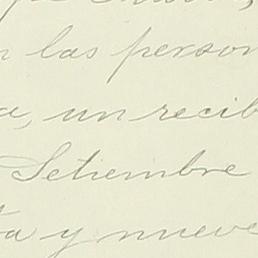 las person
a, un recib
Setiembre
ta y nueve